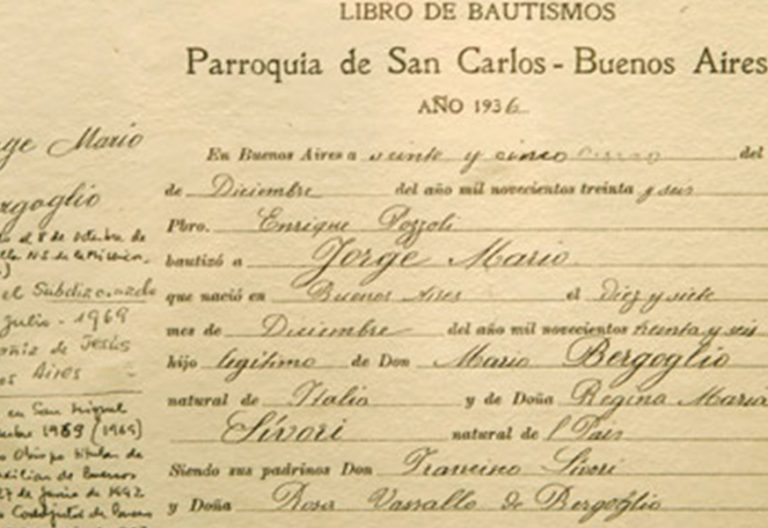 LIBRO DE BAUTISMOS
Parroquia de San Carlos - Buenos Aires
AÑO 1936
ge Mario
rgoglio
el Subdiaconado
Julio - 1969
de Jesús
os Aires
en San Miguel
1969 (1969)
Obispo titular de
de Buenos
27 de Junio de 1992
En Buenos Aires a veinte y cinco del
de Diciembre del año mil novecientos treinta y seis
Pbro. Enrique Pozzoli
bautizó a Jorge Mario
que nació en Buenos Aires el diez y siete
mes de Diciembre del año mil novecientos treinta y seis
hijo legítimo de Don Mario Bergoglio
natural de Italia y de Doña Regina María
Sívori natural de l País
Siendo sus padrinos Don Francisco Sívori
y Doña Rosa Vassallo de Bergoglio